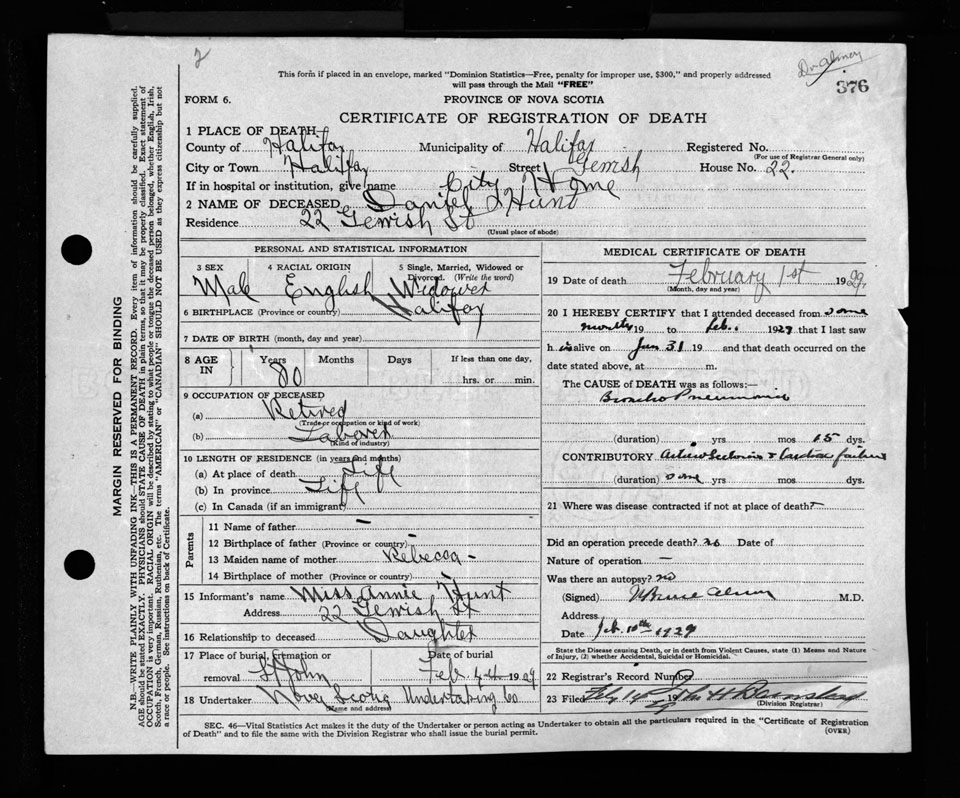 2
Dr Almon
376
This form if placed in an envelope, marked "Dominion Statistics—Free, penalty for improper use, $300," and properly addressed
will pass through the Mail "FREE"
FORM 6.
PROVINCE OF NOVA SCOTIA
CERTIFICATE OF REGISTRATION OF DEATH
MARGIN RESERVED FOR BINDING
N.B.—WRITE PLAINLY WITH UNFADING INK—THIS IS A PERMANENT RECORD. Every item of information should be carefully supplied.
AGE should be stated EXACTLY. PHYSICIANS should STATE CAUSE OF DEATH in plain terms, so that it may be properly classified. Exact statement of
OCCUPATION is very important. RACIAL ORIGIN will be described by stating to what people or tongue the deceased person belonged, whether English, Irish,
Scotch, French, German, Russian, Ruthenian, etc. The terms "AMERICAN" or "CANADIAN" SHOULD NOT BE USED as they express citizenship but not
a race or people. See instructions on back of Certificate.
1 PLACE OF DEATH
County of Halifax Municipality of Halifax Registered No.
(For use of Registrar General only)
City or Town Halifax Street Gerrish House No. 22.
If in hospital or institution, give name City Home
2 NAME OF DECEASED Daniel Hunt
Residence 22 Gerrish St
(Usual place of abode)
PERSONAL AND STATISTICAL INFORMATION
3 SEX 4 RACIAL ORIGIN 5 Single, Married, Widowed or
Divorced. (Write the word)
Male English Widower
6 BIRTHPLACE (Province or country) Halifax
7 DATE OF BIRTH (month, day and year)
8 AGE IN Years Months Days If less than one day,
80 hrs. or min.
9 OCCUPATION OF DECEASED
(a) Retired
(Trade, occupation or kind of work)
(b) Laborer
(Kind of industry)
10 LENGTH OF RESIDENCE (in years and months)
(a) At place of death Life
(b) In province Life
(c) In Canada (if an immigrant)
Parents
11 Name of father —
12 Birthplace of father (Province or country) —
13 Maiden name of mother Rebecca —
14 Birthplace of mother (Province or country)
15 Informant's name Miss Annie Hunt
Address 22 Gerrish St
16 Relationship to deceased Daughter
17 Place of burial, cremation or Date of burial
removal St John Feb. 4th 1929
18 Undertaker Nova Scotia Undertaking Co
(Name and address)
MEDICAL CERTIFICATE OF DEATH
19 Date of death February 1st 1929.
(Month, day and year)
20 I HEREBY CERTIFY that I attended deceased from some
months 19 to Feb. 1929 that I last saw
h is alive on Jan 31 19 and that death occurred on the
date stated above, at m.
The CAUSE of DEATH was as follows:—
Broncho Pneumonia
(duration) yrs mos 15 dys.
CONTRIBUTORY Arterio Sclerosis & Cardiac failure
(duration) some yrs mos. dys.
21 Where was disease contracted if not at place of death? —
Did an operation precede death? no Date of
Nature of operation —
Was there an autopsy? no
(Signed) W Bruce Almon M.D.
Address
Date Feb. 10th 1929
State the Disease causing Death, or in death from Violent Causes, state (1) Means and Nature
of Injury, (2) whether Accidental, Suicidal or Homicidal.
22 Registrar's Record Number
23 Filed Feb 14
(Division Registrar)
SEC. 46—Vital Statistics Act makes it the duty of the Undertaker or person acting as Undertaker to obtain all the particulars required in the "Certificate of Registration
of Death" and to file the same with the Division Registrar who shall issue the burial permit.
(OVER)